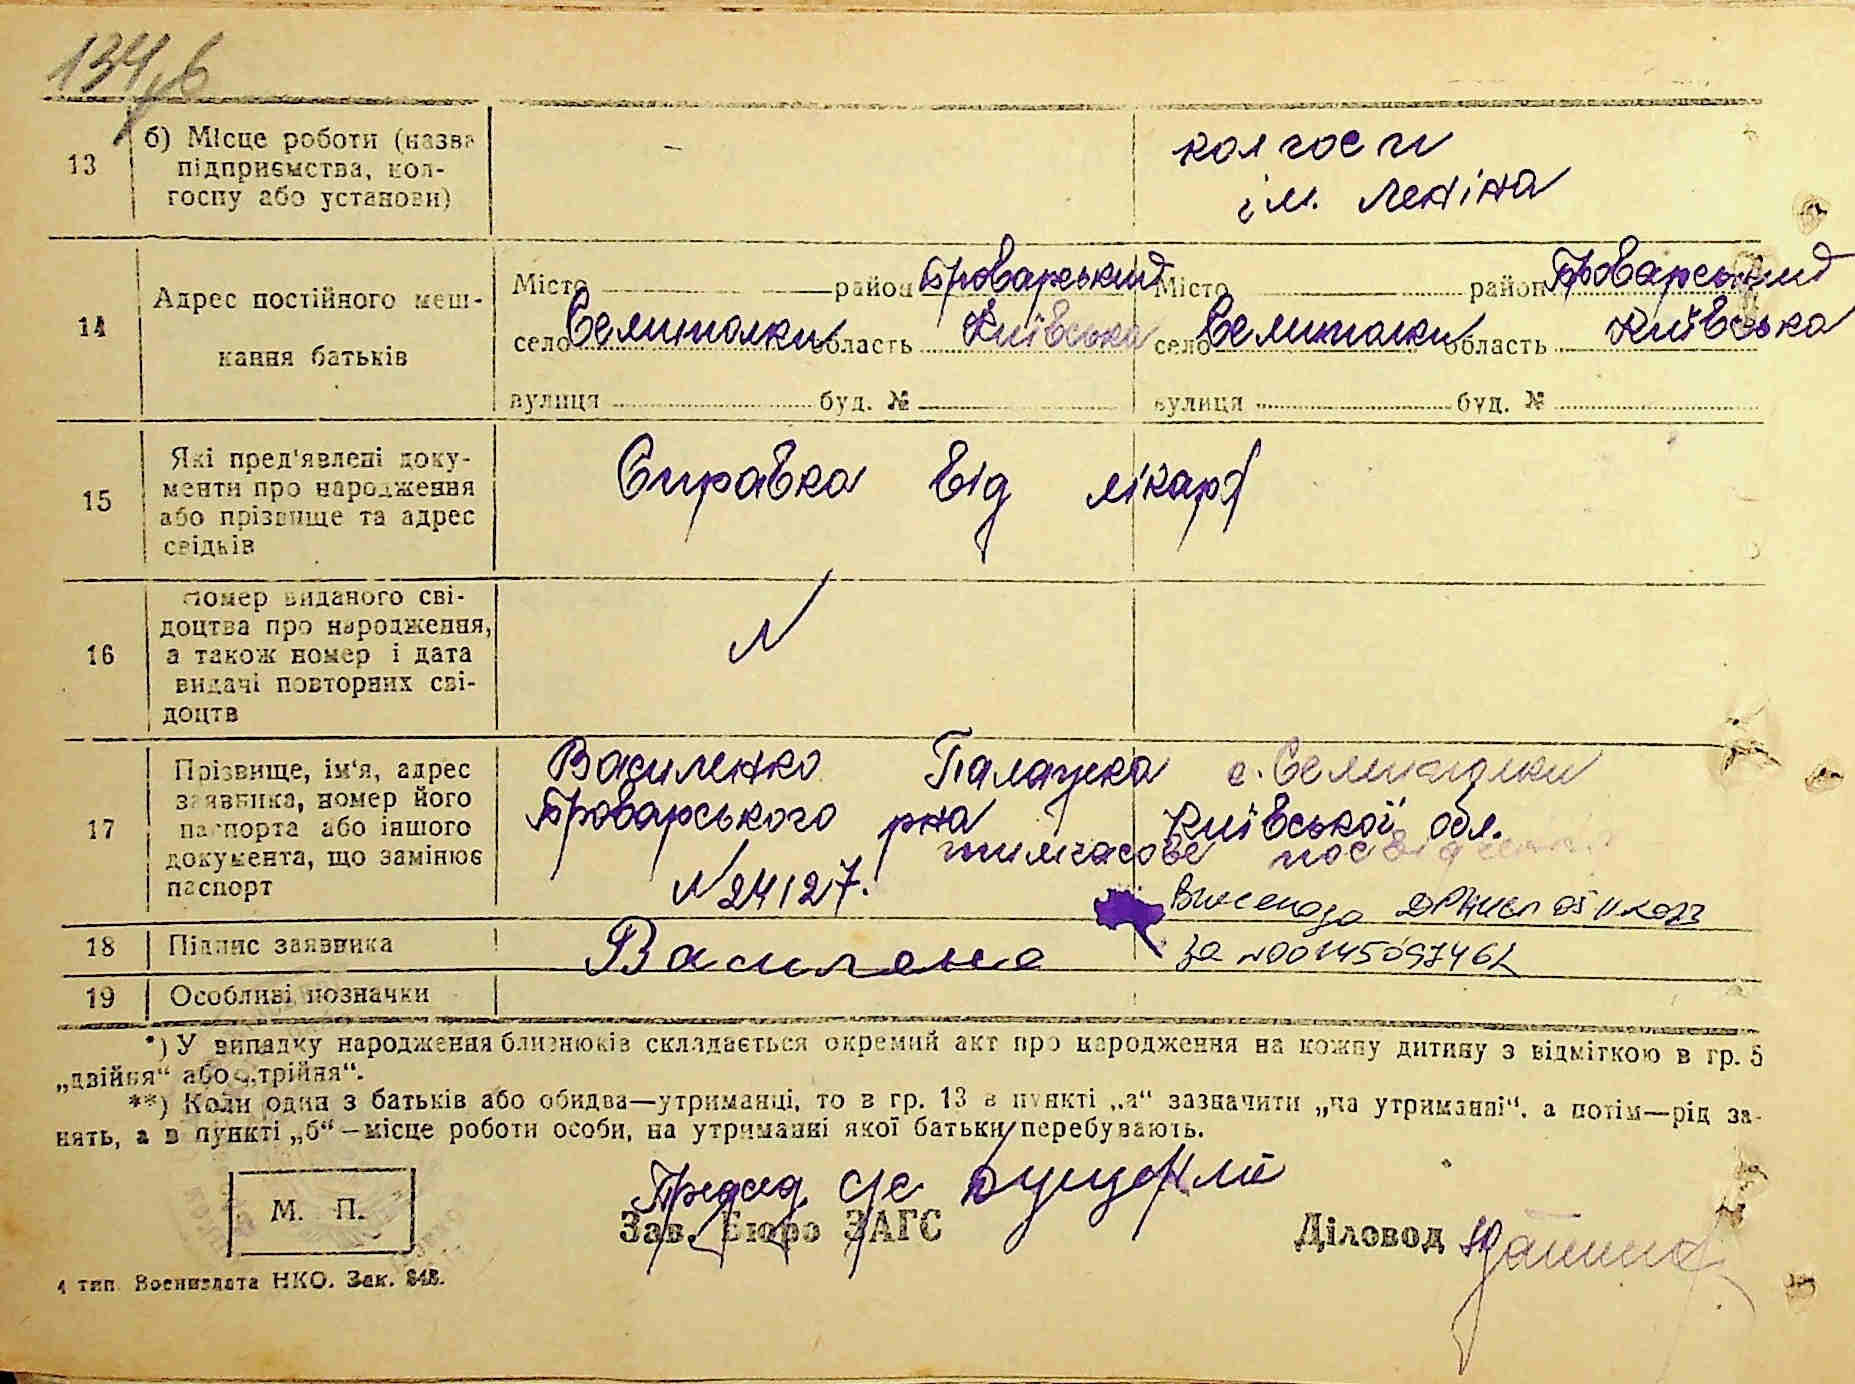 134
13 б) Місце роботи (назва підприємства, колгоспу або установи) – колгосп
ім. Леніна
14 Адрес постійного мешкання батьків
Місто район Броварський Місто район Броварський
село Семиполки область Київська село Семиполки область Київська
вулиця буд. № вулиця буд. №
15 Які пред'явлені документи про народження або прізвище та адрес свідків Справка від лікаря
16 Номер виданого свідоцтва про народження, а також номер і дата видачі повторних свідоцтв N
17 Прізвище, ім'я, адрес заявника, номер його паспорта або іншого документа, що замінює паспорт
Василенко Палажка с. Семиполки
Броварського рна Київської обл.
тимчасове посвідчення
N 24127.
18 Підпис заявника Василенко
за N00145097462
19 Особливі позначки
*) У випадку народження близнюків складається окремий акт про народження на кожну дитину з відміткою в гр. 5
„двійня“ або „трійня“.
**) Коли один з батьків або обидва—утриманці, то в гр. 13 в пункті „а“ зазначити „на утриманні“, а потім—рід за-
нять, а в пункті „б“—місце роботи особи, на утриманні якої батьки перебувають.
М. П.
Зав. Бюро ЗАГС Діловод
4 тип. Воениздата НКО. Зак. 848.